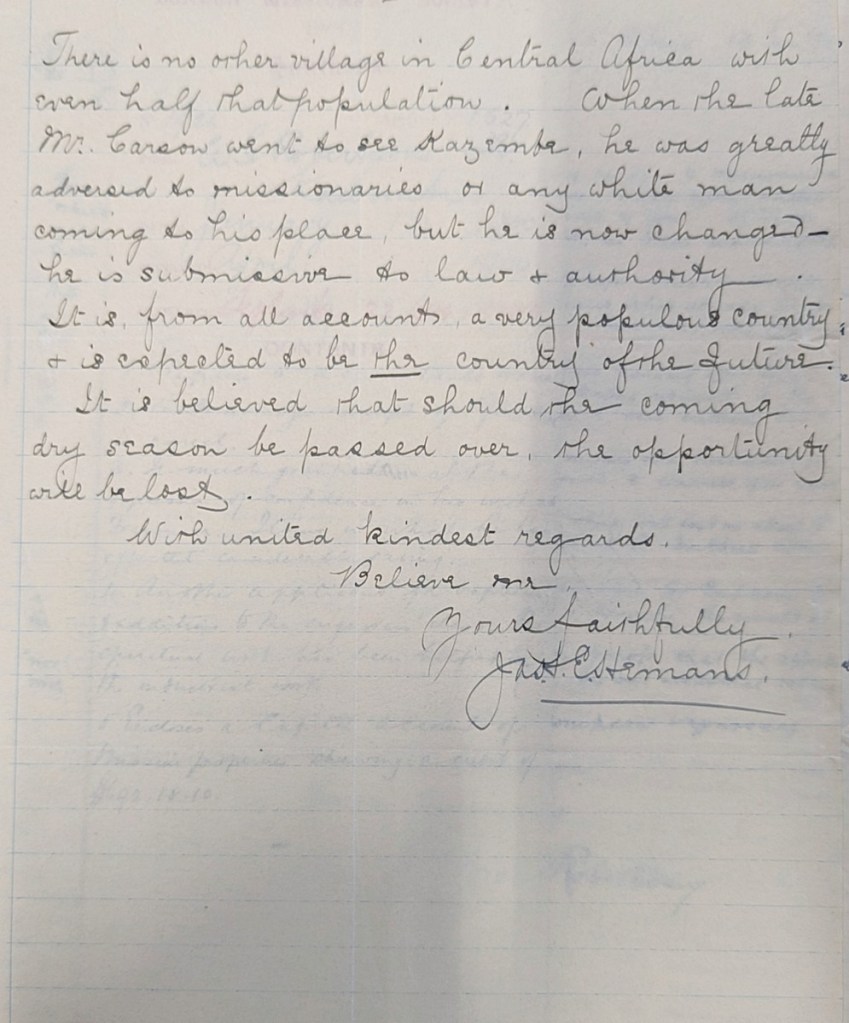 There is no other village in Central Africa with
even half that population. When the late
Mr. Carson went to see Kazembe, he was greatly
adversed to missionaries or any white man
coming to his place, but he is now changed –
he is submissive to law & authority.
It is, from all accounts, a very populous country,
& is expected to be the country of the future.
It is believed that should the coming
dry season be passed over, the opportunity
will be lost.
With united kindest regards.
Believe me.
Yours faithfully.
Jas. H. E. Hemans.